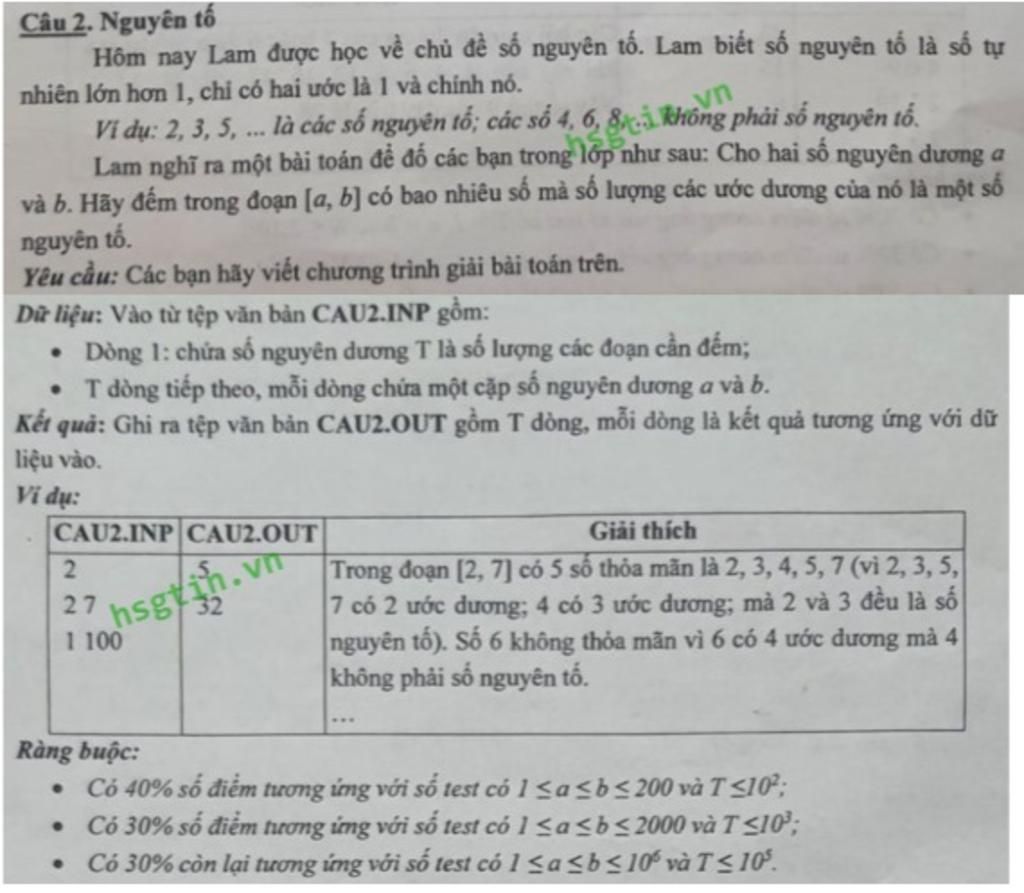 Câu 2. Nguyên tố
Hôm nay Lam được học về chủ đề số nguyên tố. Lam biết số nguyên tố là số tự
nhiên lớn hơn 1, chỉ có hai ước là 1 và chính nó.
Ví dụ: 2, 3, 5, ... là các số nguyên tố; các số 4, 6, 8, ... không phải số nguyên tố.
hsgtin.vn
Lam nghĩ ra một bài toán để đố các bạn trong lớp như sau: Cho hai số nguyên dương a
và b. Hãy đếm trong đoạn [a, b] có bao nhiêu số mà số lượng các ước dương của nó là một số
nguyên tố.
Yêu cầu: Các bạn hãy viết chương trình giải bài toán trên.
Dữ liệu: Vào từ tệp văn bản CAU2.INP gồm:
• Dòng 1: chứa số nguyên dương T là số lượng các đoạn cần đếm;
• T dòng tiếp theo, mỗi dòng chứa một cặp số nguyên dương a và b.
Kết quả: Ghi ra tệp văn bản CAU2.OUT gồm T dòng, mỗi dòng là kết quả tương ứng với dữ
liệu vào.
Ví dụ:
CAU2.INP CAU2.OUT Giải thích
2 5 Trong đoạn [2, 7] có 5 số thỏa mãn là 2, 3, 4, 5, 7 (vì 2, 3, 5,
2 7 32 7 có 2 ước dương; 4 có 3 ước dương; mà 2 và 3 đều là số
1 100 nguyên tố). Số 6 không thỏa mãn vì 6 có 4 ước dương mà 4
không phải số nguyên tố.
...
hsgtin.vn
Ràng buộc:
• Có 40% số điểm tương ứng với số test có 1 ≤ a ≤ b ≤ 200 và T ≤10²;
• Có 30% số điểm tương ứng với số test có 1 ≤ a ≤ b ≤ 2000 và T ≤10³;
• Có 30% còn lại tương ứng với số test có 1 ≤ a ≤ b ≤ 10⁶ và T ≤ 10⁵.